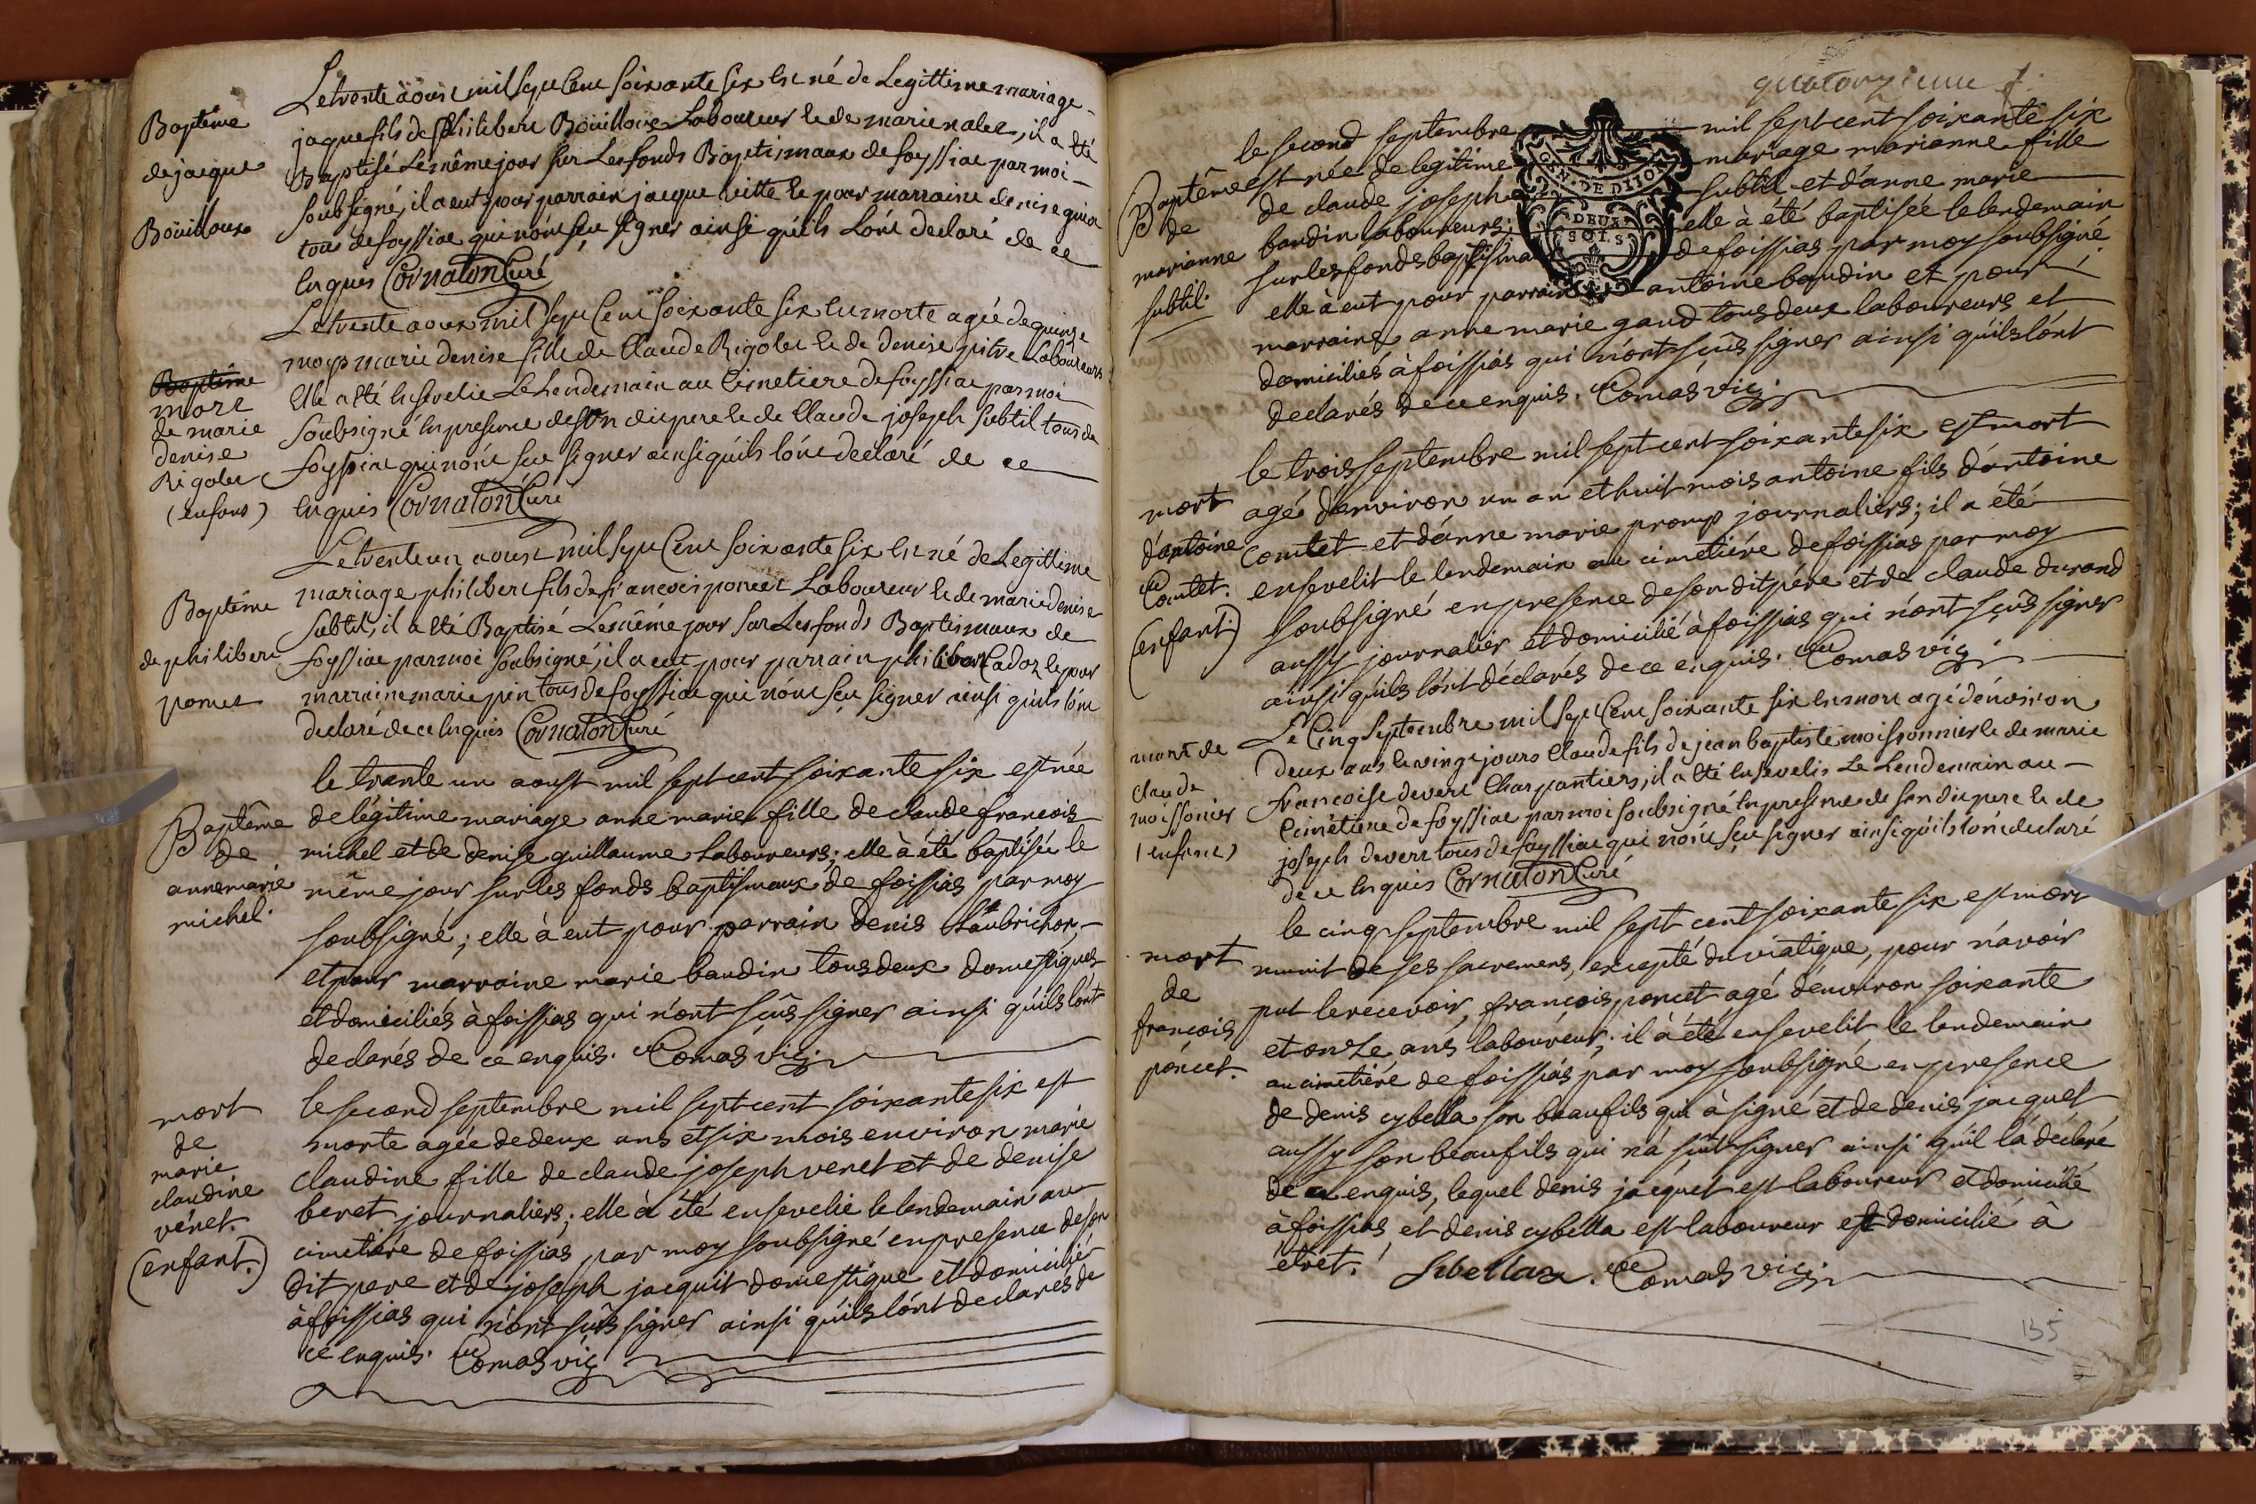 Baptême
de jacque
Boüilloux
Le trente aoust mil sept Cent soixante six est né de Legittime mariage
jaque fils de philibert Boüilloux Laboureur et de marie nalet, il a été
Baptisé Le même jour sur Les fonds Baptismaux de foyssiat par moi
soubsigné, il a eut pour parrain jacque vitte et pour marraine denise
tous de foyssiat qui n'ont sçu signer ainsi qu'ils L'ont declaré de ce
Enquis Cornaton Curé
Baptême
mort
de marie
denise
Rigolet
(enfant)
Le trente aoust mil sept Cent soixante six est morte agée de quinze
moys marie denise fille de Claude Rigolet et de denise pitre Laboureurs
Elle a été Ensevelie Le Lendemain au Cimetiere de foyssiat par moi
soubsigné En presence de son dit pere et de Claude joseph subtil tous de
foyssiat qui n'ont sçu signer ainsi qu'ils l'ont declaré de ce
Enquis Cornaton Curé
Baptême
de philibert
poncet
Le trente un aoust mil sept Cent soixante six Est né de Legittime
mariage philibert fils de francois poncet Laboureur et de marie denise
subtil, il a été Baptisé Le même jour sur Les fonds Baptismaux de
foyssiat par moi soubsigné, il a eut pour parrain philibert Cadoz et pour
marraine marie pin tous de foyssiat qui n'ont sçu signer ainsi qu'ils l'ont
declaré de ce Enquis Cornaton Curé
Baptême
de
anne marie
michel.
le trante un aoust mil sept cent soixante six est née
de légitime mariage anne marie fille de claude francois
michel et de denise guillaume laboureurs; elle à été baptisée le
même jour sur les fonds baptismaux de foissias par moy
soubsigné; elle à eut pour parrain denis
et pour marraine marie baudin tous deux domestiques
et domiciliés à foissias qui n'ont sçûs signer ainsi qu'ils l'ont
declarés de ce enquis. Comas vic;
mort
de
marie
claudine
vénet.
(enfant.)
le second septembre mil sept cent soixante six est
morte agée de deux ans et six mois environ marie
claudine fille de claude joseph venet et de denise
beret journaliers; elle à été ensevelie le lendemain au
cimetière de foissias par moy soubsigné en presence de son
dit pere et de joseph jacquit domestique et domicilié
à foissias qui n'ont sçûs signer ainsi qu'ils l'ont declarés de
ce enquis. Comas vic;
quatorzieme f.
GEN. DE DIJON
DEUX
SOLS
Baptême
de
marianne
subtil.
le second septembre mil sept cent soixante six
est née de legitime mariage marianne fille
de claude joseph subtil et d'anne marie
baudin laboureurs; elle à été baptisée le lendemain
sur les fonds baptisma de foissias par moy soubsigné
elle à eut pour parrain antoine baudin et pour
marraine anne marie gaud tous deux laboureurs et
domiciliés à foissias qui n'ont sçûs signer ainsi qu'ils l'ont
declarés de ce enquis. Comas vic;
mort
d'antoine
Comtet.
(enfant.)
le trois septembre mil sept cent soixante six est mort
agé d'environ un an et huit mois antoine fils d'antoine
Comtet et d'anne marie promp journaliers; il a été
ensevelit le lendemain au cimetière de foissias par moy
soubsigné en presence de son dit père et de claude durand
aussy journalier et domicilié à foissias qui n'ont sçûs signer
ainsi qu'ils l'ont déclarés de ce enquis. Comas vic;
mort de
claude
moissonier
(enfant)
Le Cinq Septembre mil sept Cent soixante six Est mort agé d'environ
deux ans et vingt jours Claude fils de jean baptiste moissonnier et de marie
francoise devert Charpantiers, il a été Ensevelis Le Lendemain au
Cimétiere de foyssiat par moi soubsigné En presence de son dit pere et de
joseph devert tous de foyssiat qui n'ont sçu signer ainsi qu'ils l'ont declaré
de ce Enquis Cornaton Curé
mort
de
francois
poncet.
le cinq septembre mil sept cent soixante six est mort
munit de ses sacremens, excepté du viatique, pour n'avoir
put le recevoir, françois poncet agé d'environ soixante
et onze ans laboureur; il à été ensevelit le lendemain
au cimetière de foissias par moy soubsigné en presence
de denis cybella son beaufils qui à signé et de denis jacquet
aussy son beaufils qui n'a sçut signer ainsi qu'il l'a déclaré
de ce enquis, lequel denis jacquet est laboureur et domicilié
à foissias et denis cybella est laboureur et domicilié à
étret. Sibellax. Comas vic;
135